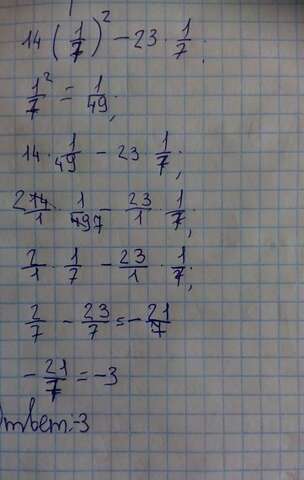 14(1/7)² − 23 · 1/7;
1²/7 = 1/49;
14 · 1/49 − 23 · 1/7;
2 14/1 · 1/49 7 − 23/1 · 1/7;
2/1 · 1/7 − 23/1 · 1/7;
2/7 − 23/7 = −21/7
−21/7 = −3
Ответ: -3